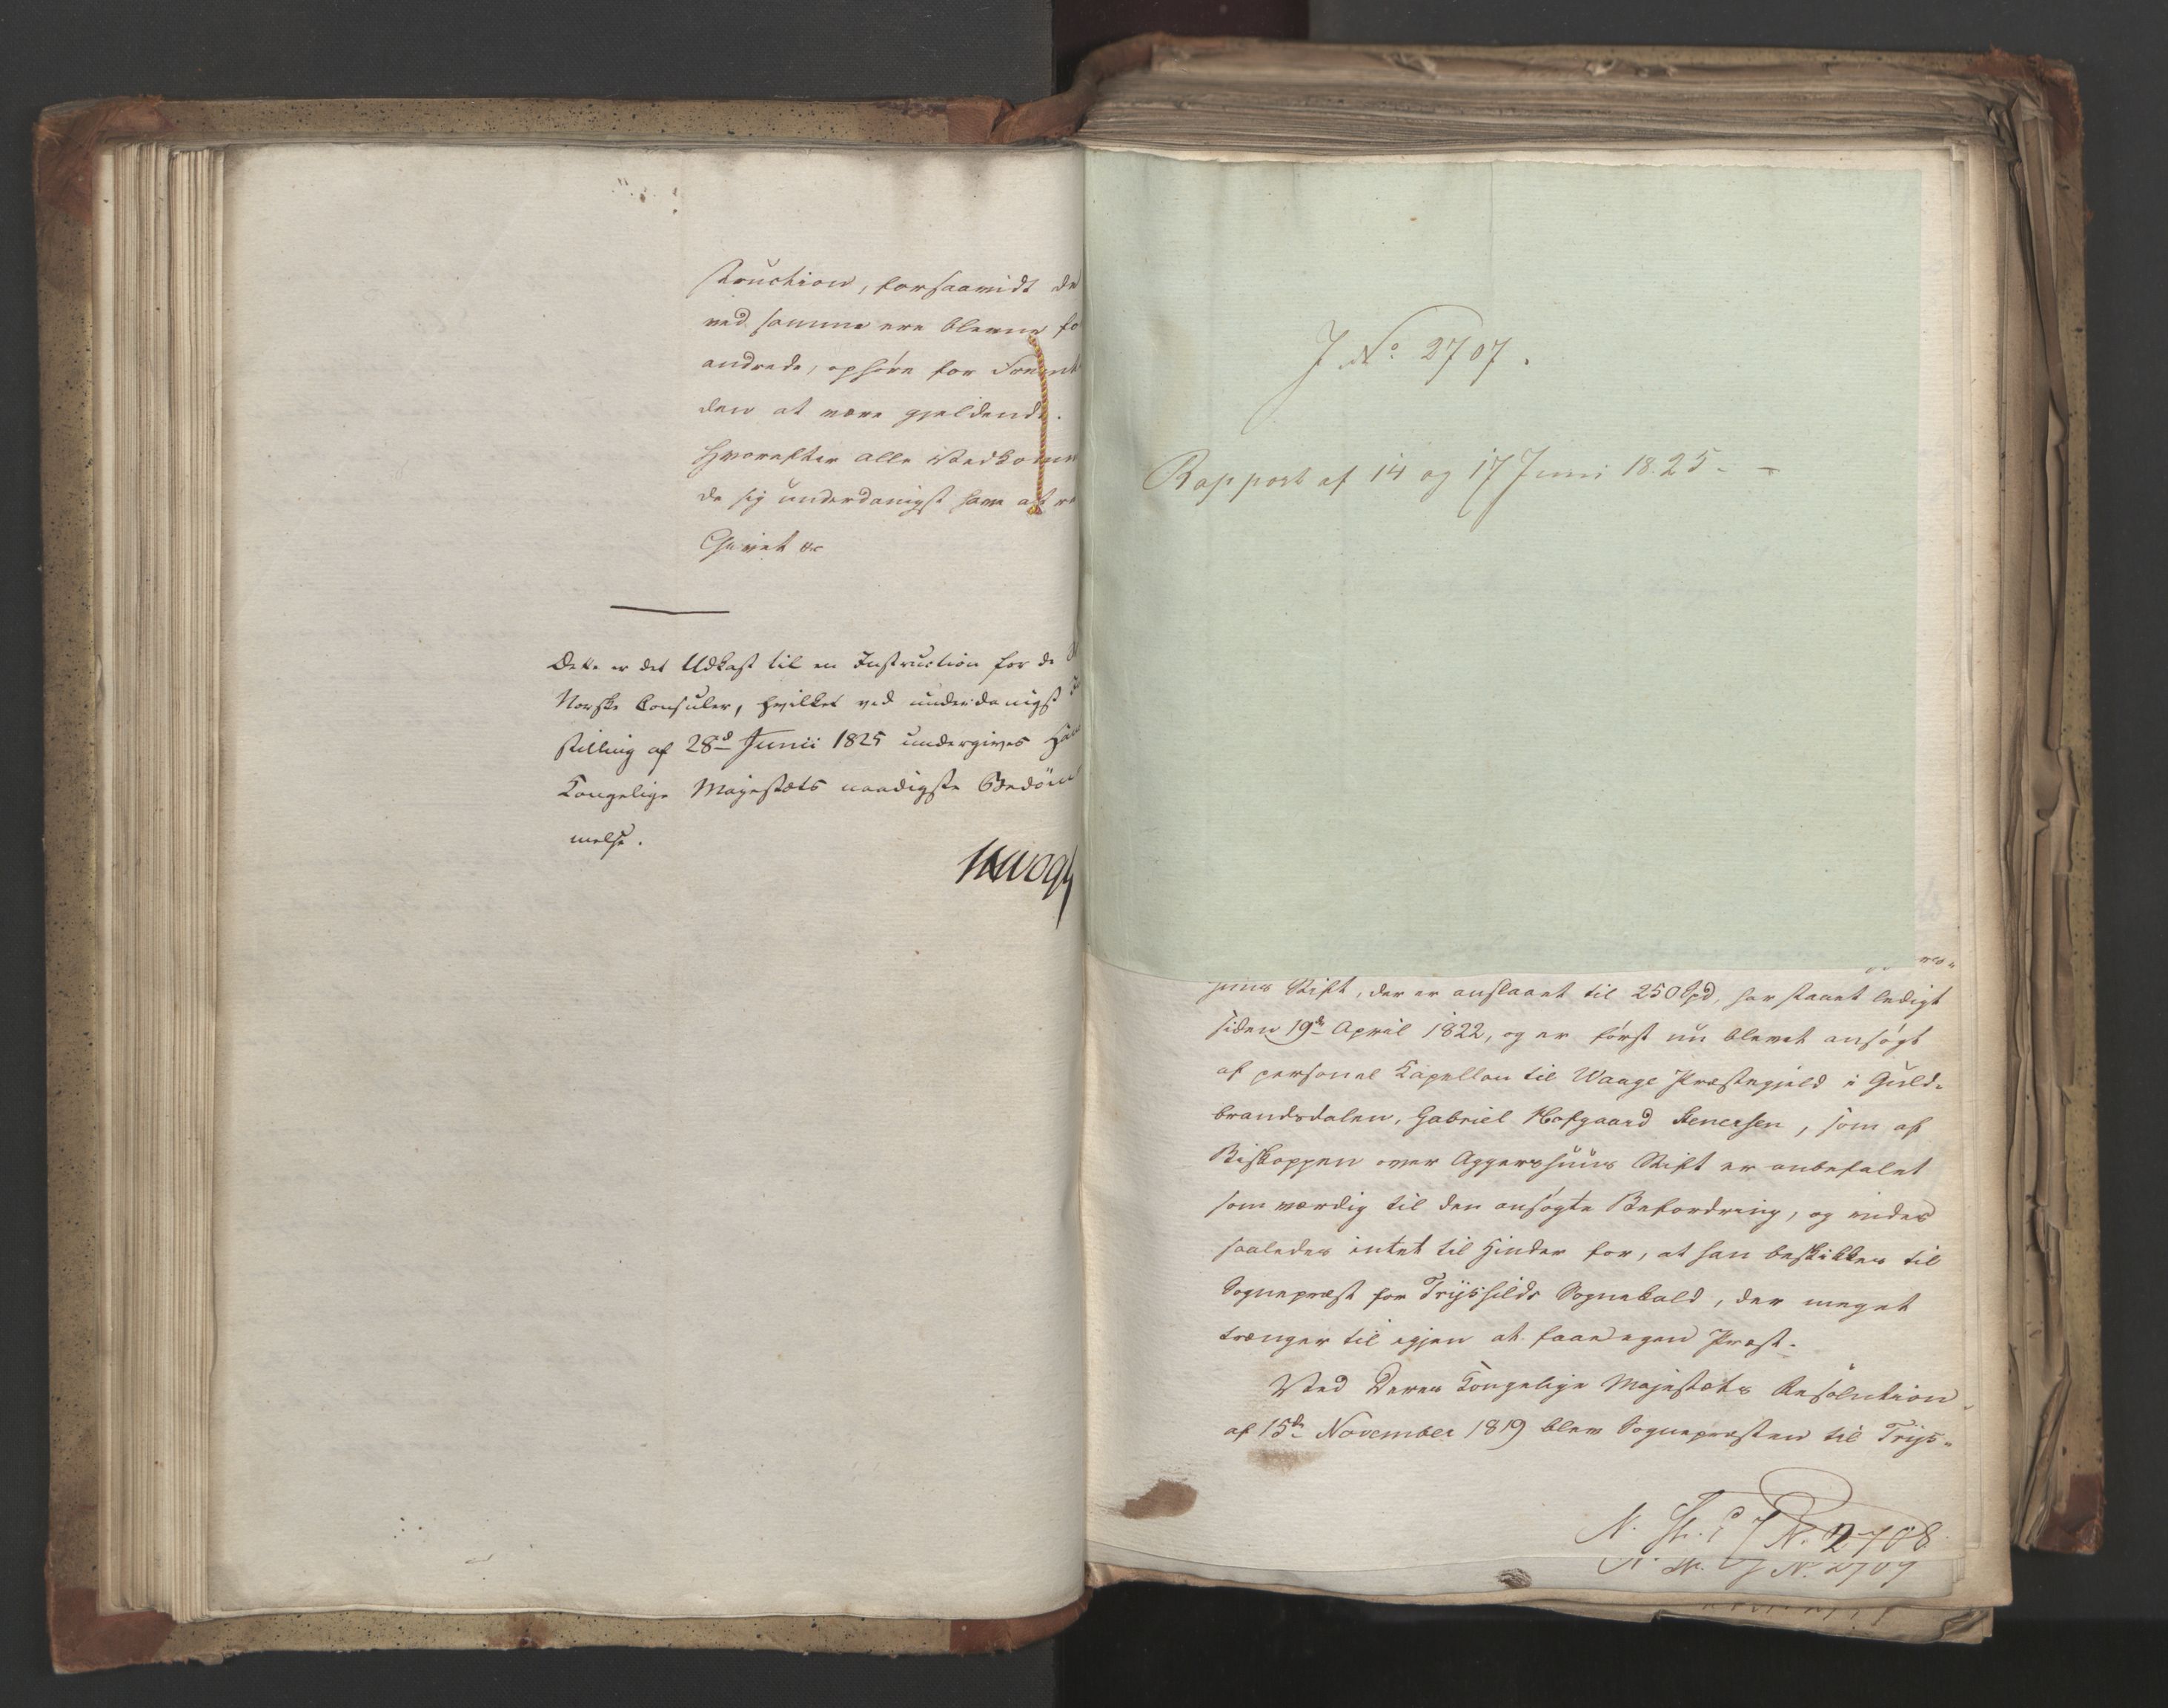 struction, forsaavidt de
ved samme ere blevne fo
andrede, ophøre for Fremt
den at være gjeldende.
Hvorefter alle Vedkomm
de sig underdanigst have at re
Givet &c
Dette er det Udkast til en Instruction for de
Norske Consuler, hvilket ved underdanigst
stilling af 28de Junii 1825 undergives Hans
Kongelige Majestæts naadigste Bedöm
melse.
J No 2707.
Rapport af 14 og 17 Juni 1825.
huus Stift, der er anslaaet til 250 Spd, har staaet ledigt
siden 19de April 1822, og er først nu blevet ansøgt
af personel Kapellan til Waage Præstegjeld i Guld-
brandsdalen, Gabriel Hofgaard Stenersen, som af
Biskoppen over Aggershuus Stift er anbefalet
som værdig til den ansøgte Befordring, og vides
saaledes intet til Hinder for, at han beskikkes til
Sognepræst for Trysilds Sognekald, der meget
trænger til igjen at faae egen Præst.
Ved Deres Kongelige Majestæts Resolution
af 15de November 1819 blev Sognepræsten til Trys-
N. St. S. J No. 2708
J No. 2707